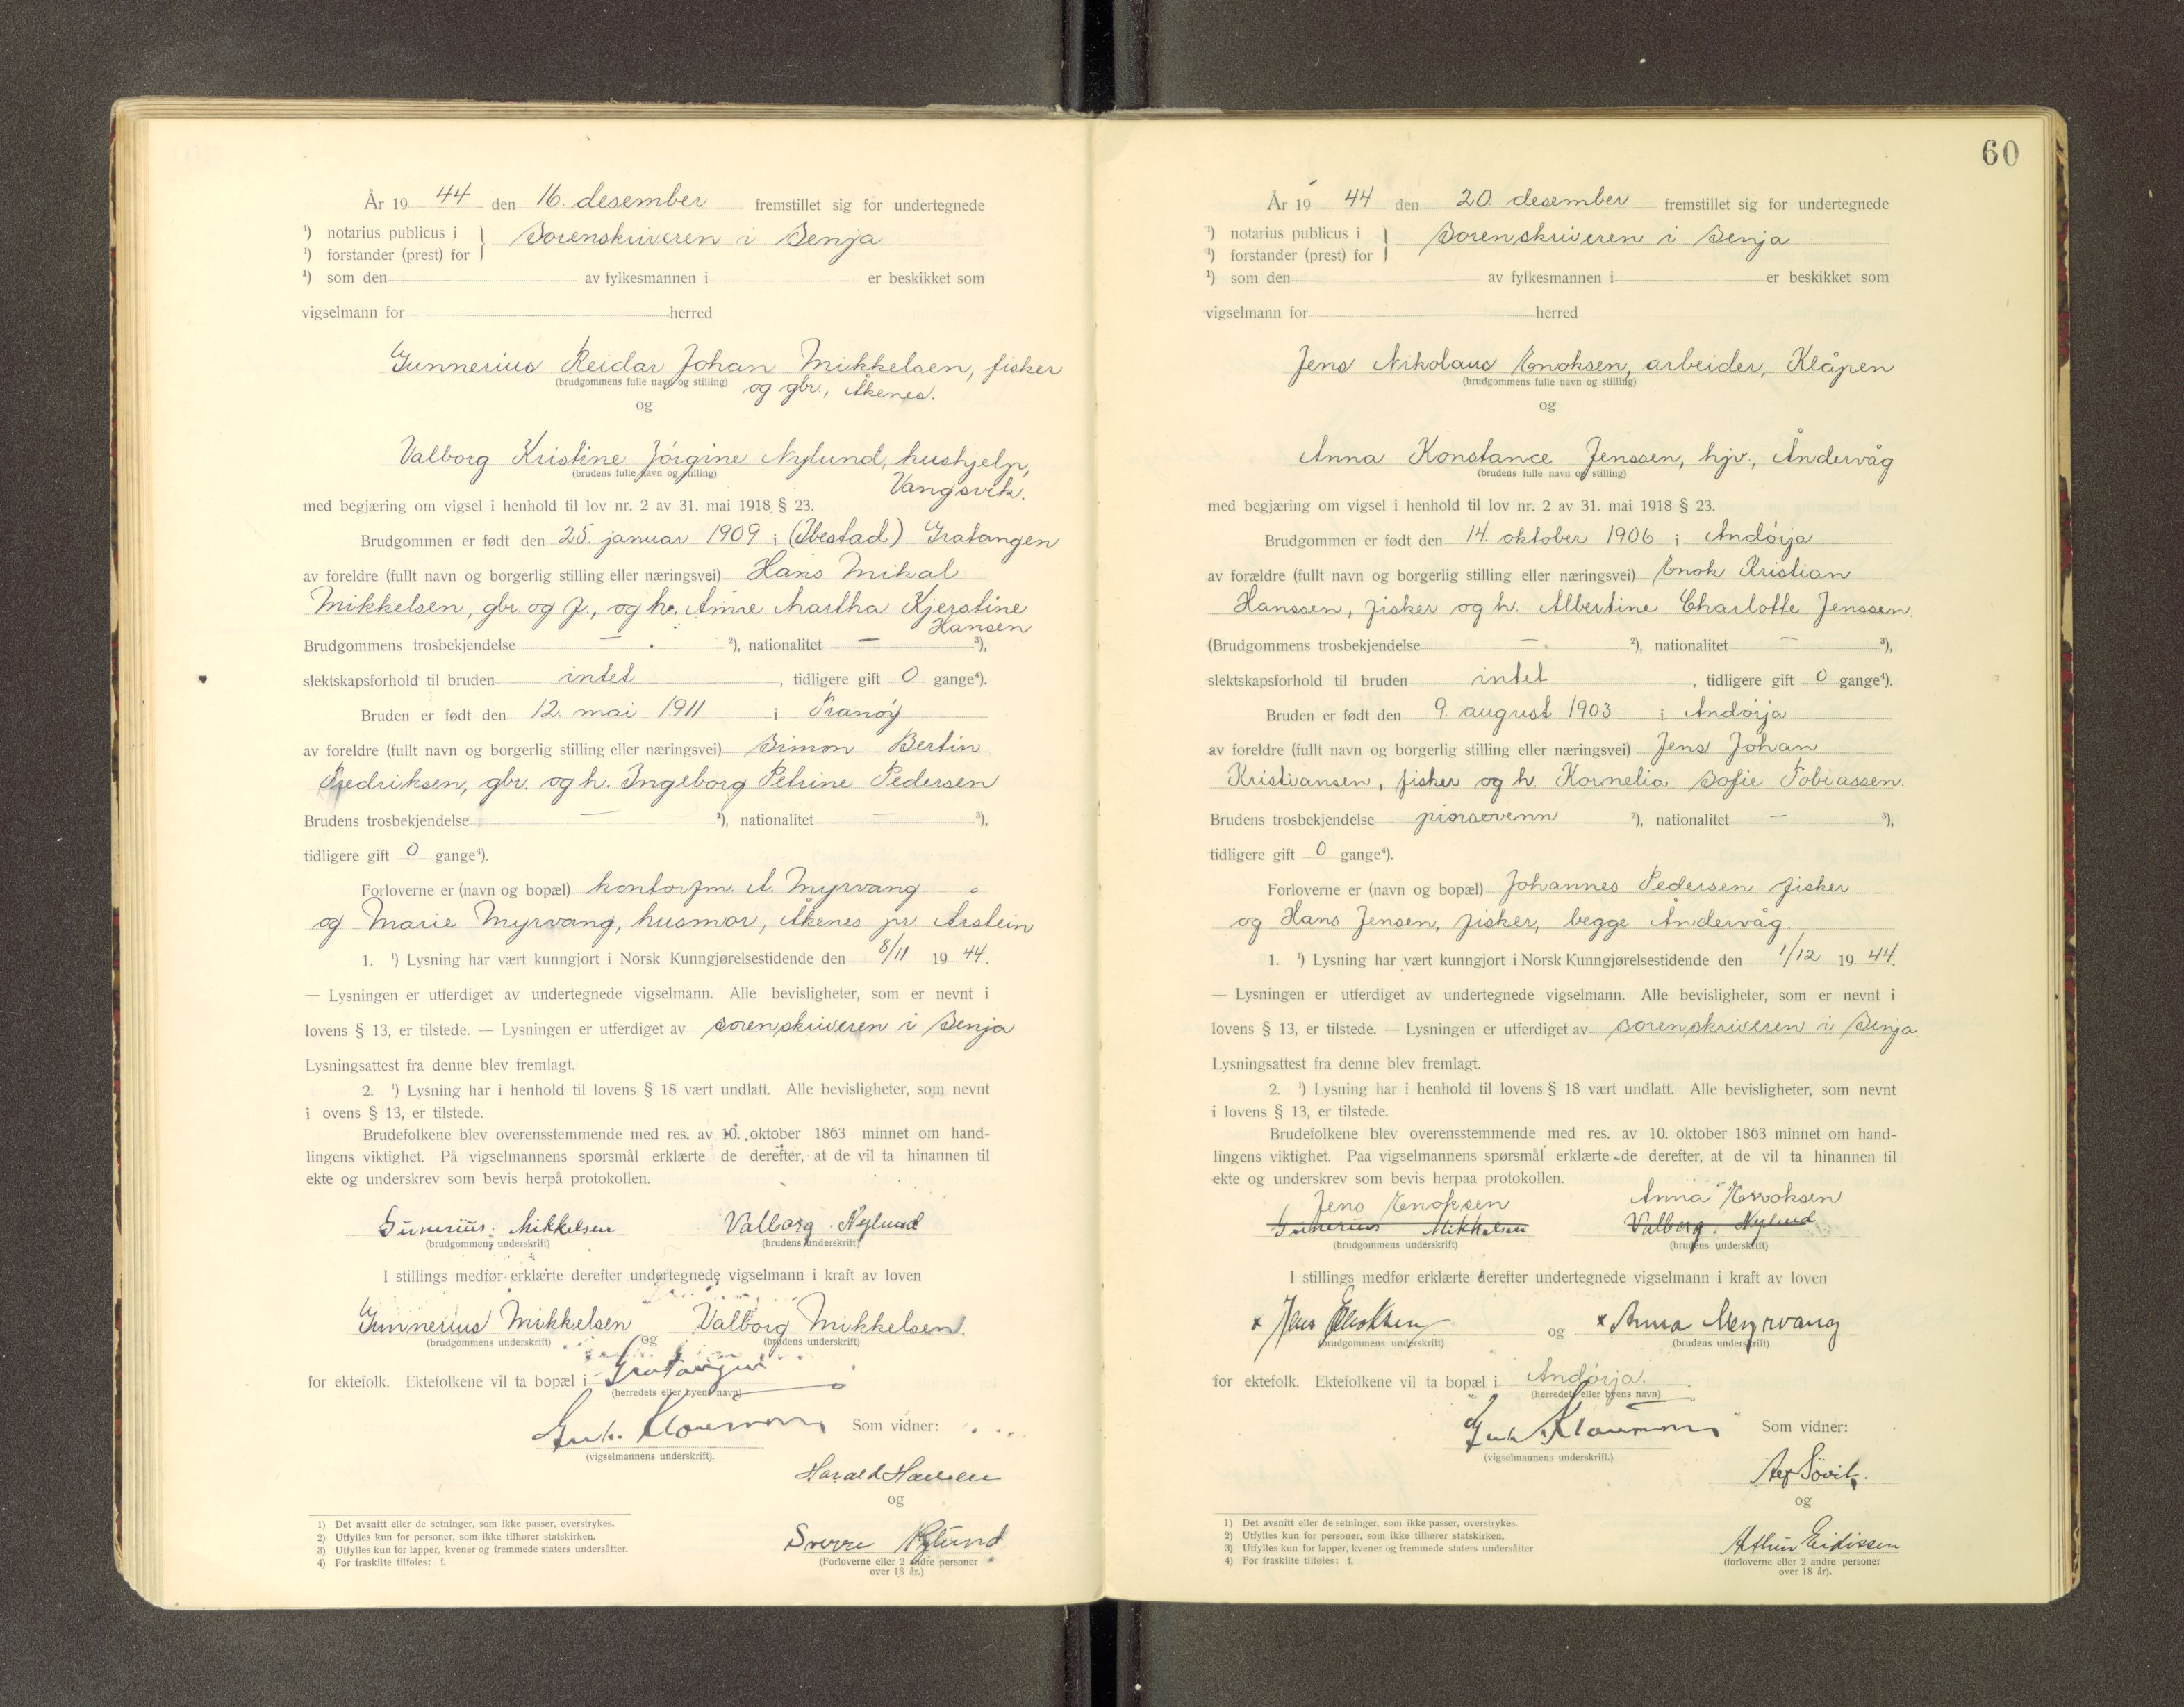 År 19 44 den 16. desember fremstillet sig for undertegnede
¹) notarius publicus i } Sorenskriveren i Senja
¹) forstander (prest) for
¹) som den av fylkesmannen i er beskikket som
vigselmann for herred
Gunnerius Reidar Johan Mikkelsen, fisker
(brudgommens fulle navn og stilling) og gbr., Åkenes.
og
Valborg Kristine Jørgine Nylund, hushjelp,
(brudens fulle navn og stilling) Vangsvik.
med begjæring om vigsel i henhold til lov nr. 2 av 31. mai 1918 § 23.
Brudgommen er født den 25. januar 1909 i (Ibestad) Gratangen
av foreldre (fullt navn og borgerlig stilling eller næringsvei) Hans Mikal
Mikkelsen, gbr. og f., og h. Anne Martha Kjerstine
Hansen
Brudgommens trosbekjendelse — ²), nationalitet — ³),
slektskapsforhold til bruden intet, tidligere gift 0 gange⁴).
Bruden er født den 12. mai 1911 i Tranøy
av foreldre (fullt navn og borgerlig stilling eller næringsvei) Simon Bertin
Fredriksen, gbr. og h. Ingeborg Petrine Pedersen
Brudens trosbekjendelse — ²), nationalitet — ³),
tidligere gift 0 gange⁴).
Forloverne er (navn og bopæl) kontorfm. A. Myrvang
og Marie Myrvang, husmor, Åkenes pr. Årstein
1. ¹) Lysning har vært kunngjort i Norsk Kunngjørelsestidende den 8/11 19 44.
— Lysningen er utferdiget av undertegnede vigselmann. Alle bevisligheter, som er nevnt i
lovens § 13, er tilstede. — Lysningen er utferdiget av sorenskriveren i Senja
Lysningsattest fra denne blev fremlagt.
2. ¹) Lysning har i henhold til lovens § 18 vært undlatt. Alle bevisligheter, som nevnt
i ovens § 13, er tilstede.
Brudefolkene blev overensstemmende med res. av 10. oktober 1863 minnet om hand-
lingens viktighet. På vigselmannens spørsmål erklærte de derefter, at de vil ta hinannen til
ekte og underskrev som bevis herpå protokollen.
Gunerius Mikkelsen Valborg Nylund
(brudgommens underskrift) (brudens underskrift)
I stillings medfør erklærte derefter undertegnede vigselmann i kraft av loven
Gunnerius Mikkelsen og Valborg Mikkelsen.
(brudgommens underskrift) (brudens underskrift)
for ektefolk. Ektefolkene vil ta bopæl i Gratangen
(herredets eller byens navn)
Som vidner:
(vigselmannens underskrift).
Harald Hansen
og
Sverre Nylund
(Forloverne eller 2 andre personer
over 18 år.)
1) Det avsnitt eller de setninger, som ikke passer, overstrykes.
2) Utfylles kun for personer, som ikke tilhører statskirken.
3) Utfylles kun for lapper, kvener og fremmede staters undersåtter.
4) For fraskilte tilføies: f.
60
År 19 44 den 20. desember fremstillet sig for undertegnede
¹) notarius publicus i } Sorenskriveren i Senja
¹) forstander (prest) for
¹) som den av fylkesmannen i er beskikket som
vigselmann for herred
Jens Nikolaus Enoksen, arbeider, Klåpen
(brudgommens fulle navn og stilling)
og
Anna Konstance Jenssen, hjv., Åndervåg
(brudens fulle navn og stilling)
med begjæring om vigsel i henhold til lov nr. 2 av 31. mai 1918 § 23.
Brudgommen er født den 14. oktober 1906 i Andørja
av forældre (fullt navn og borgerlig stilling eller næringsvei) Enok Kristian
Hanssen, fisker og h. Albertine Charlotte Jenssen.
(Brudgommens trosbekjendelse — ²), nationalitet — ³),
slektskapsforhold til bruden intet, tidligere gift 0 gange⁴).
Bruden er født den 9. august 1903 i Andørja
av foreldre (fullt navn og borgerlig stilling eller næringsvei) Jens Johan
Kristiansen, fisker og h. Kornelia Sofie Tobiassen.
Brudens trosbekjendelse pinsevenn ²), nationalitet — ³),
tidligere gift 0 gange⁴).
Forloverne er (navn og bopæl) Johannes Pedersen fisker
og Hans Jensen, fisker, begge Åndervåg.
1. ¹) Lysning har vært kunngjort i Norsk Kunngjørelsestidende den 1/12 19 44.
— Lysningen er utferdiget av undertegnede vigselmann. Alle bevisligheter, som er nevnt i
lovens § 13, er tilstede. — Lysningen er utferdiget av sorenskriveren i Senja.
Lysningsattest fra denne blev fremlagt.
2. ¹) Lysning har i henhold til lovens § 18 vært undlatt. Alle bevisligheter, som nevnt
i lovens § 13, er tilstede.
Brudefolkene blev overensstemmende med res. av 10. oktober 1863 minnet om hand-
lingens viktighet. Paa vigselmannens spørsmål erklærte de derefter, at de vil ta hinannen til
ekte og underskrev som bevis herpaa protokollen.
Jens Enoksen Anna Enoksen
Gunerius Mikkelsen Valborg Nylund
(brudgommens underskrift) (brudens underskrift)
I stillings medfør erklærte derefter undertegnede vigselmann i kraft av loven
x Jens Enoksen og x Anna Myrvang
(brudgommens underskrift) (brudens underskrift)
for ektefolk. Ektefolkene vil ta bopæl i Andørja.
(herredets eller byens navn)
Som vidner:
(vigselmannens underskrift.)
og
Arthur Eidissen
(forloverne eller 2 andre personer
over 18 år).
1) Det avsnitt eller de setninger, som ikke passer, overstrykes.
2) Utfylles kun for personer, som ikke tilhører statskirken.
3) Utfylles kun for lapper, kvener og fremmede staters undersåtter
4) For fraskilte tilføies: f.